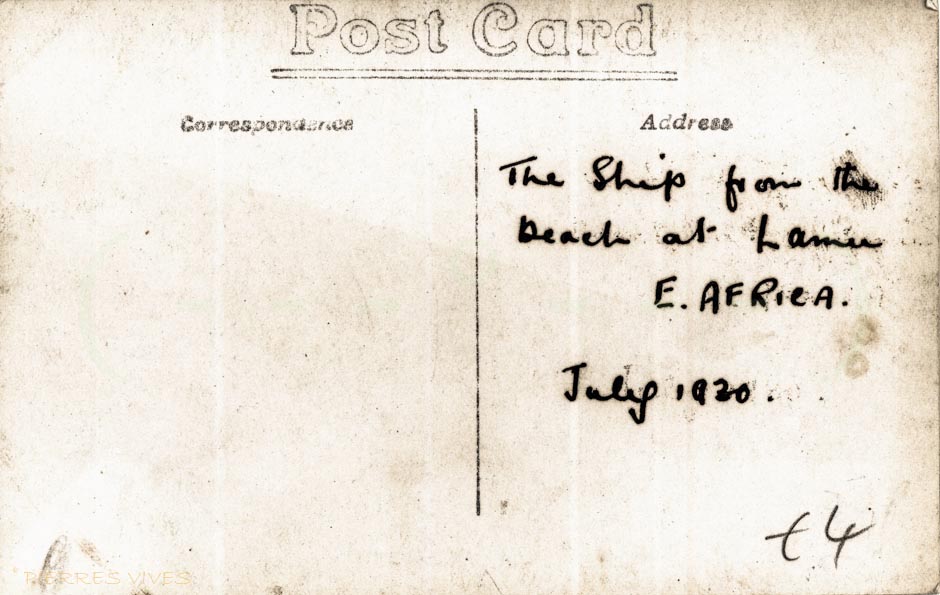 Post Card
Correspondence
Address
The Ship from the
Beach at Lamu
E. AFRICA.
July 1920.
£4
PIERRES VIVES